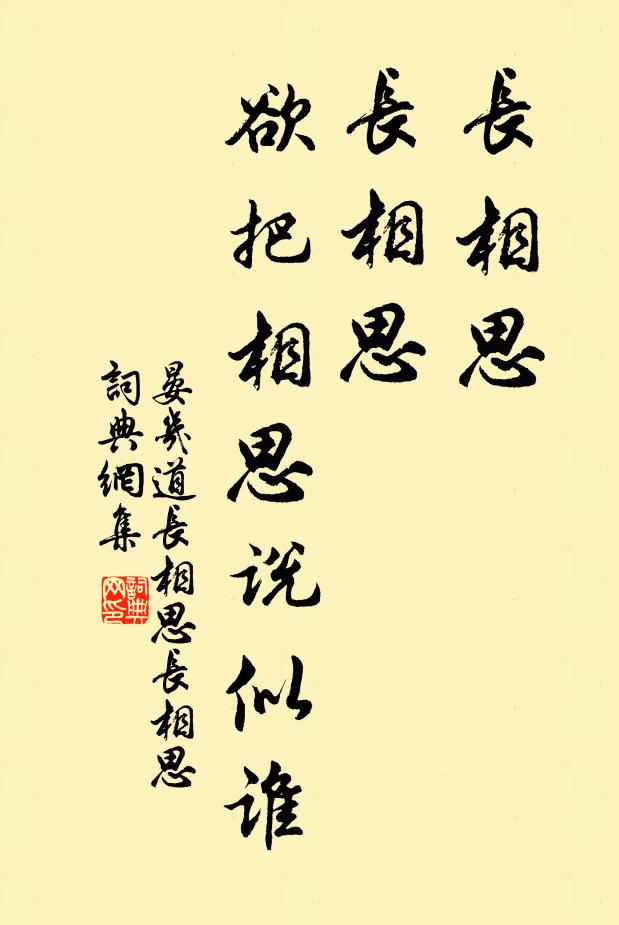 長相思
長相思
欲把相思说似谁
晏幾道長相思長相思
詞典網集
詞典网印